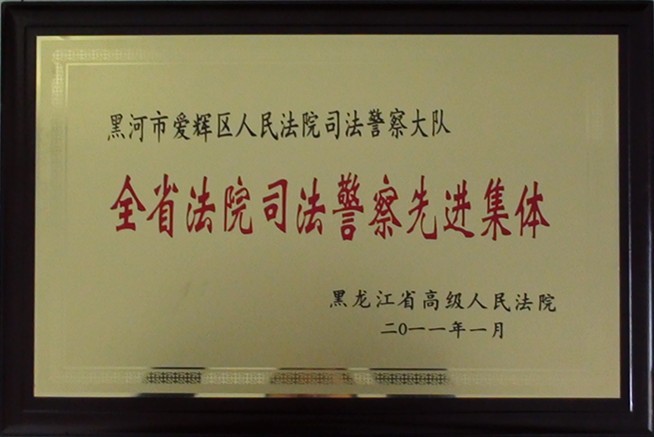 黑河市爱辉区人民法院司法警察大队
全省法院司法警察先进集体
黑龙江省高级人民法院
二〇一一年一月